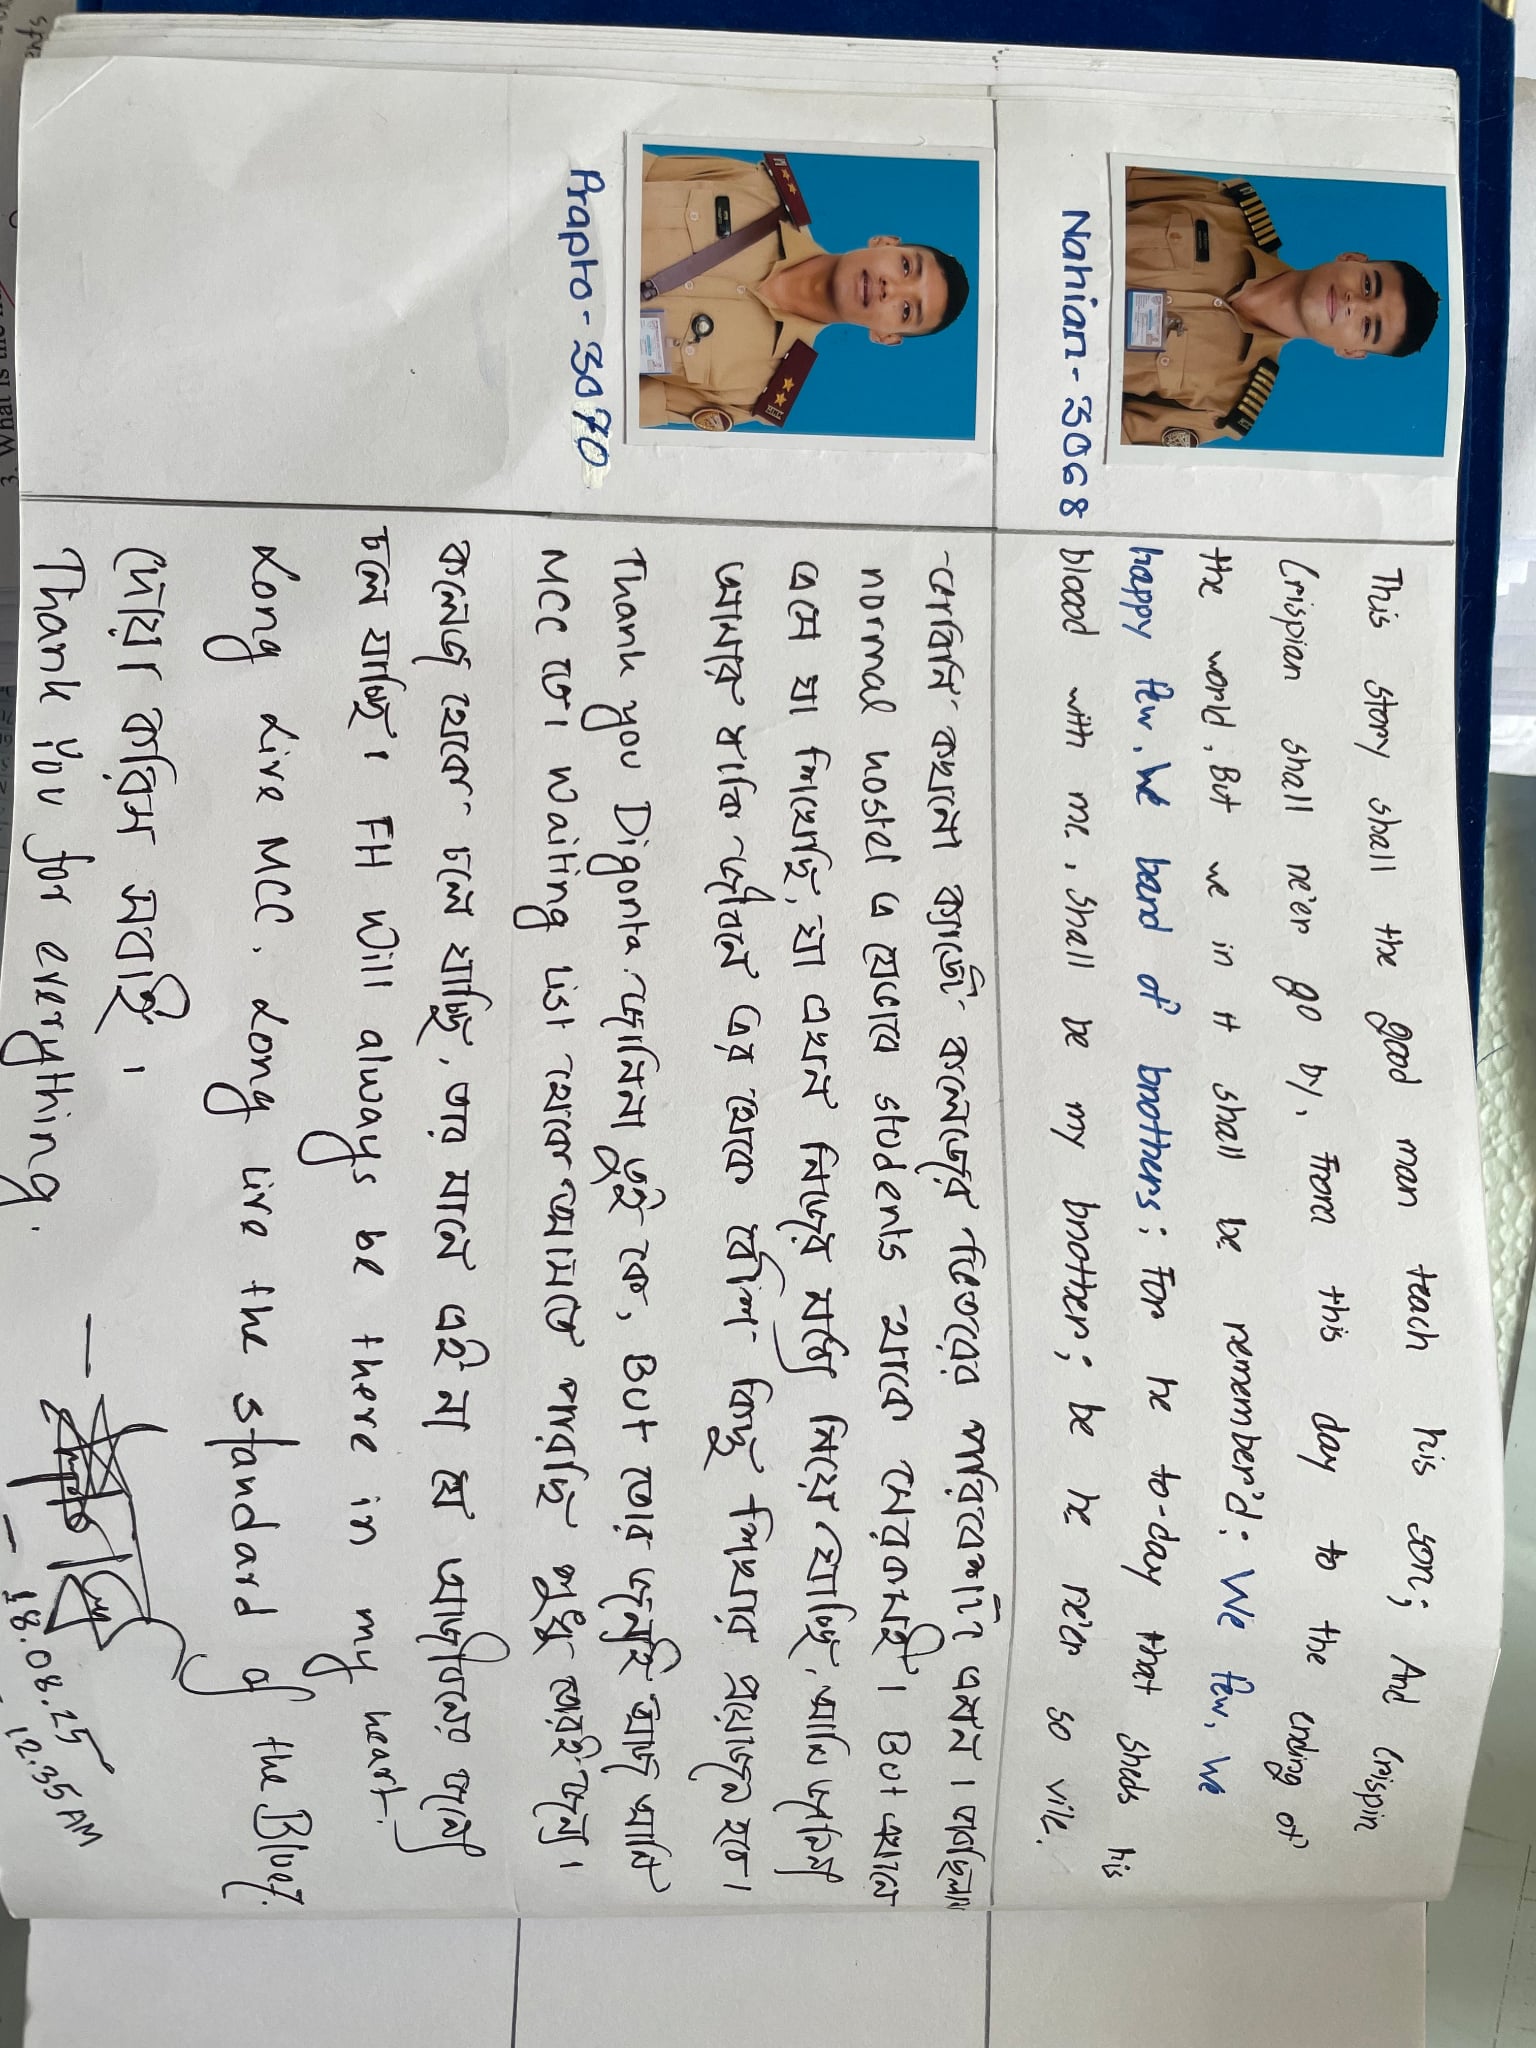 This story shall the good man teach his son; And Crispin
Crispian shall ne'er go by, From this day to the ending of
the world, But we in it shall be remember'd; We few, We
happy few, We band of brothers; For he to-day that sheds his
bloood with me, Shall be my brother; be he ne'er so vile.
Nahian - 3068
ভাবিনি কখনো ক্যাডেট কলেজের ভিতরের পরিবেশটা এমন। ভাবছিলাম
normal hostel এ যেভাবে students থাকে সেরকমই। But এখানে
এসে যা শিখেছি, যা এখন নিজের মধ্যে নিয়ে যাচ্ছি, আমি জানিনা
আমার বাকি জীবনে এর থেকে বেশি কিছু শিখার প্রয়োজন হবে।
Thank you Digonta. জানিনা তুই কে, But তোর জন্যই আজ আমি
MCC তে। Waiting List থেকে আসতে পারছি শুধু তোরই জন্য।
Prapto - 3070
কলেজ থেকে চলে যাচ্ছি, তার মানে এই না যে আজীবনের জন্যে
চলে যাচ্ছি। FH Will always be there in my heart.
Long Live MCC. Long live the standard of the Bluez.
দোয়া করিস সবাই।
Thank You for everything.
- 18.08.25
- 12.35 AM
3. What is the